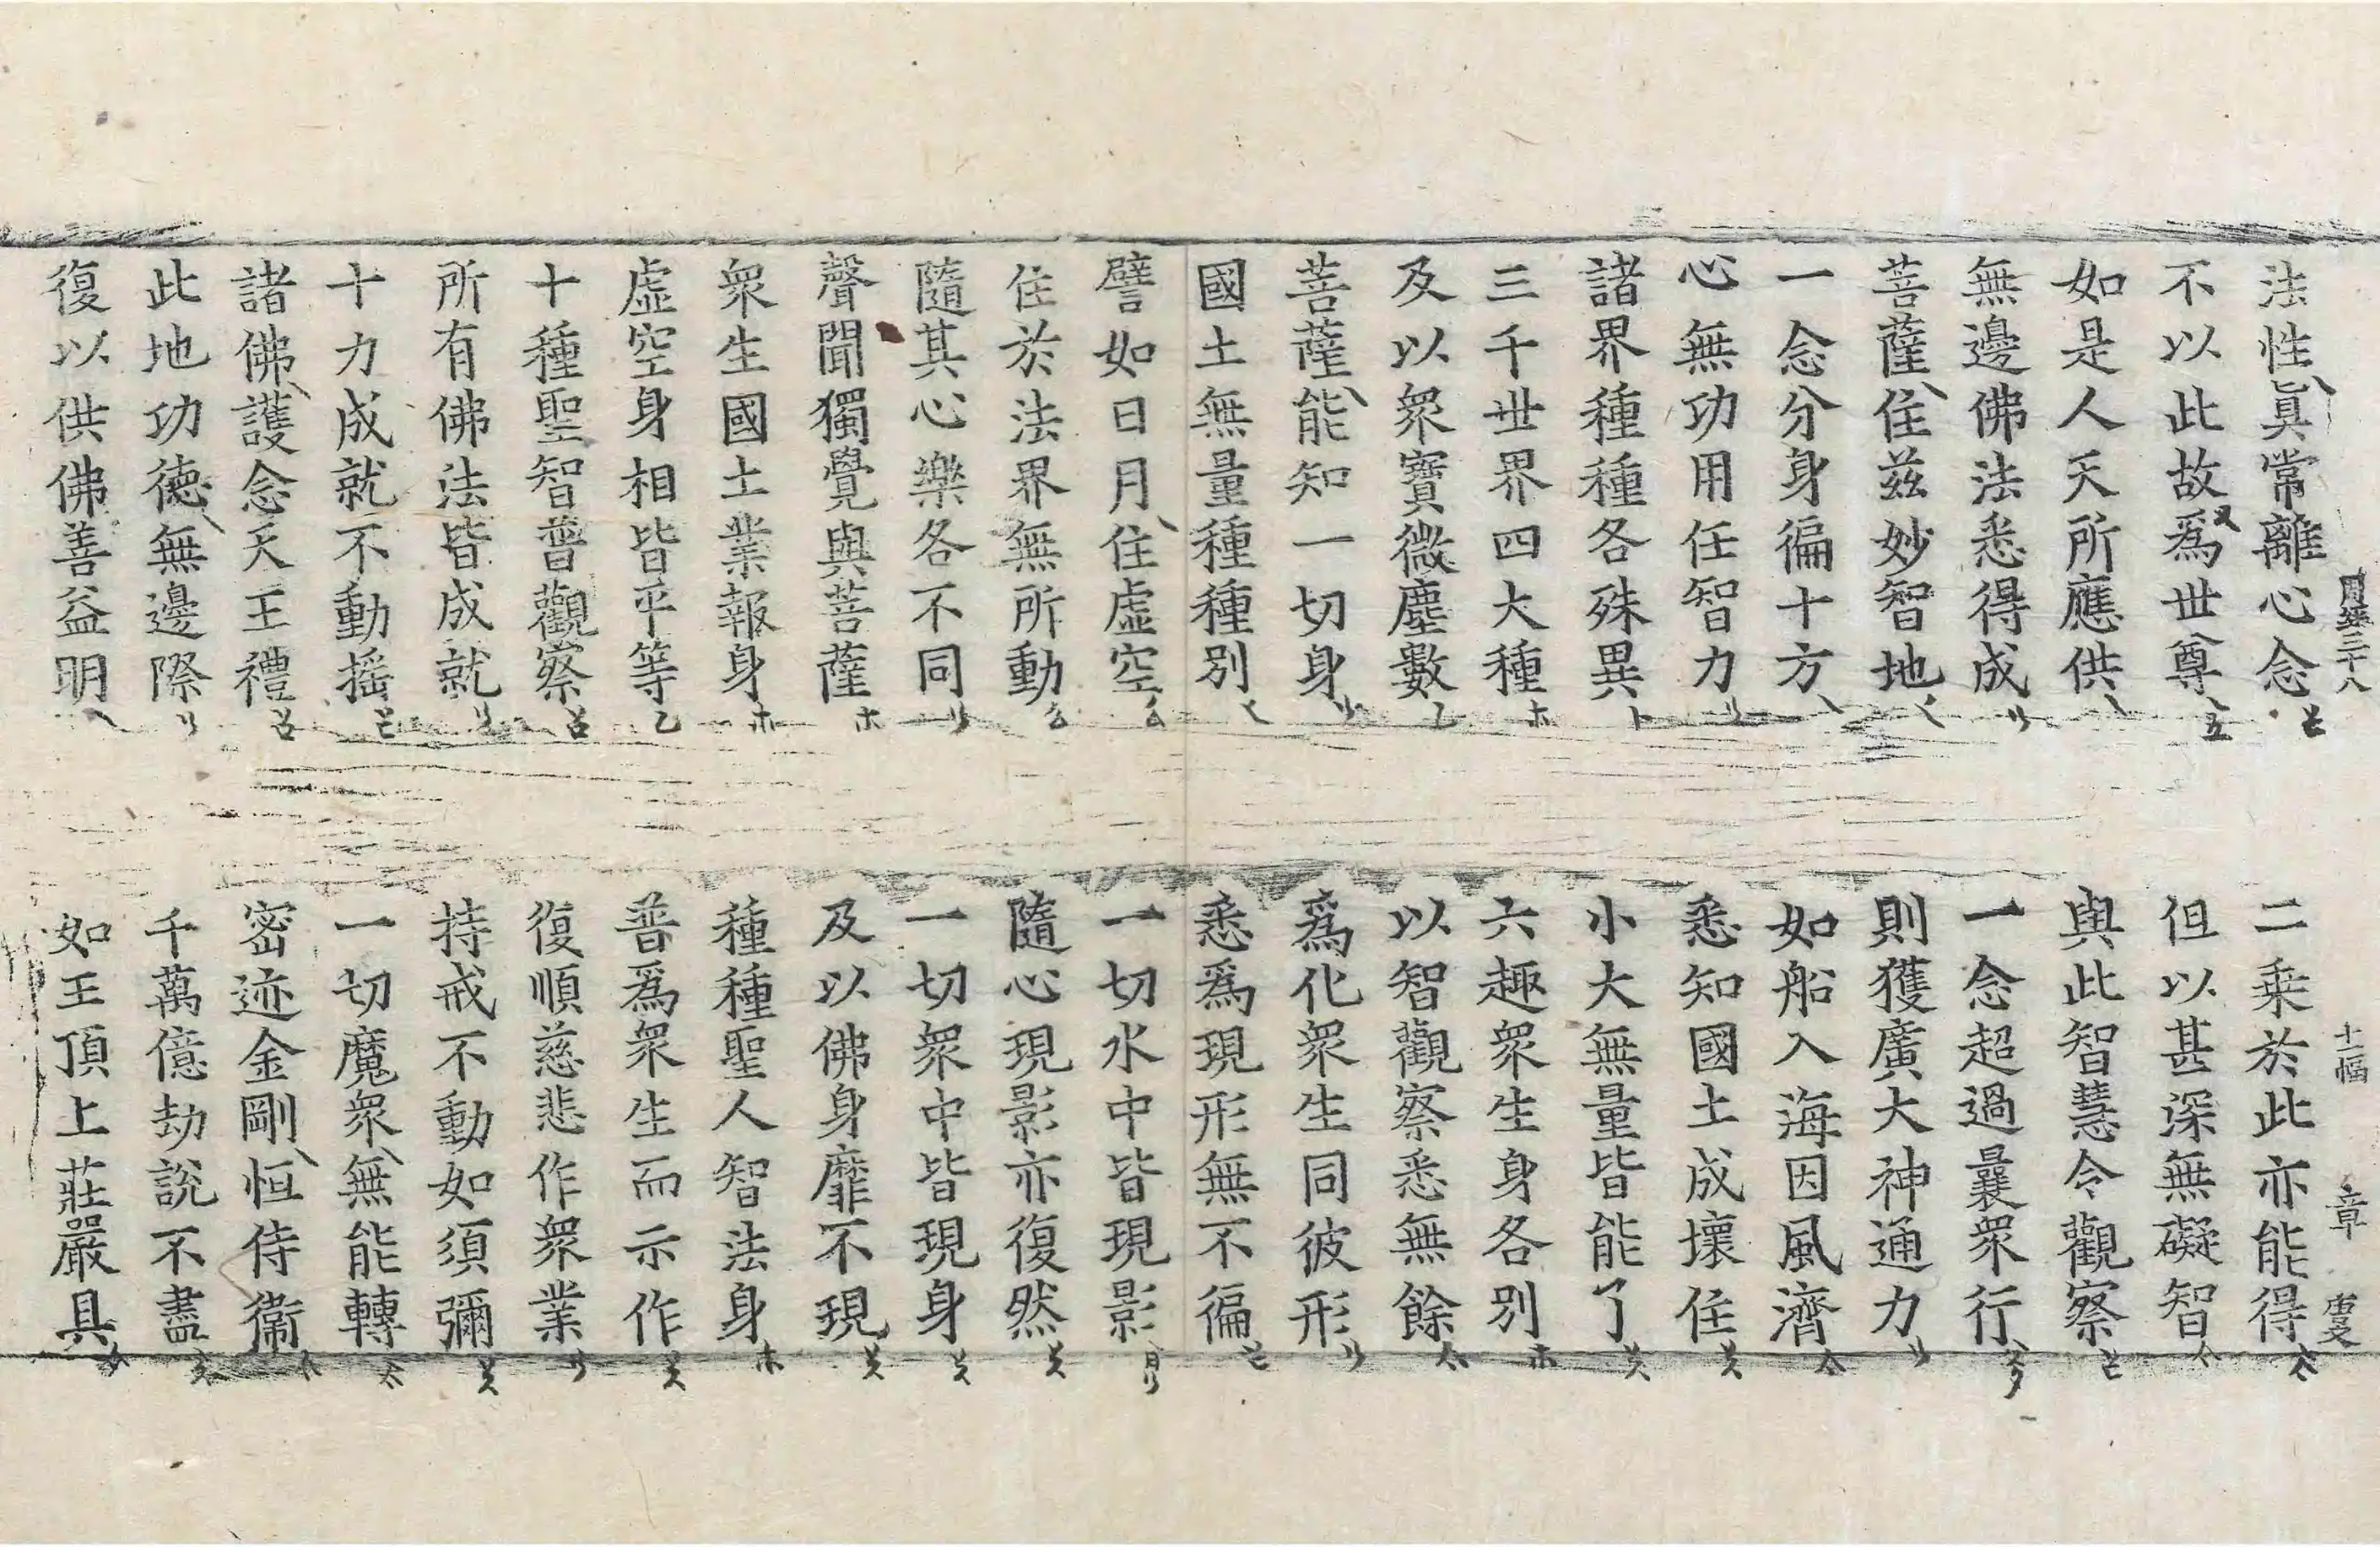 周經三十八 幅 章
法性眞常離心念 二乘於此亦能得
不以此故爲世尊 但以甚深無礙智
如是人天所應供 與此智慧令觀察
無邊佛法悉得成 一念超過曩衆行
菩薩住玆妙智地 則獲廣大神通力
一念分身徧十方 如船入海因風濟
心無功用任智力 悉知國土成壞住
諸界種種各殊異 小大無量皆能了
三千世界四大種 六趣衆生身各別
及以衆寶微塵數 以智觀察悉無餘
菩薩能知一切身 爲化衆生同彼形
國土無量種種別 悉爲現形無不徧
譬如日月住虛空 一切水中皆現影
住於法界無所動 隨心現影亦復然
隨其心樂各不同 一切衆中皆現身
聲聞獨覺與菩薩 及以佛身靡不現
衆生國土業報身 種種聖人智法身
虛空身相皆平等 普爲衆生而示作
十種聖智普觀察 復順慈悲作衆業
所有佛法皆成就 持戒不動如須彌
十力成就不動搖 一切魔衆無能轉
諸佛護念天王禮 密迹金剛恒侍衞
此地功德無邊際 千萬億劫說不盡
復以供佛善益明 如王頂上莊嚴具